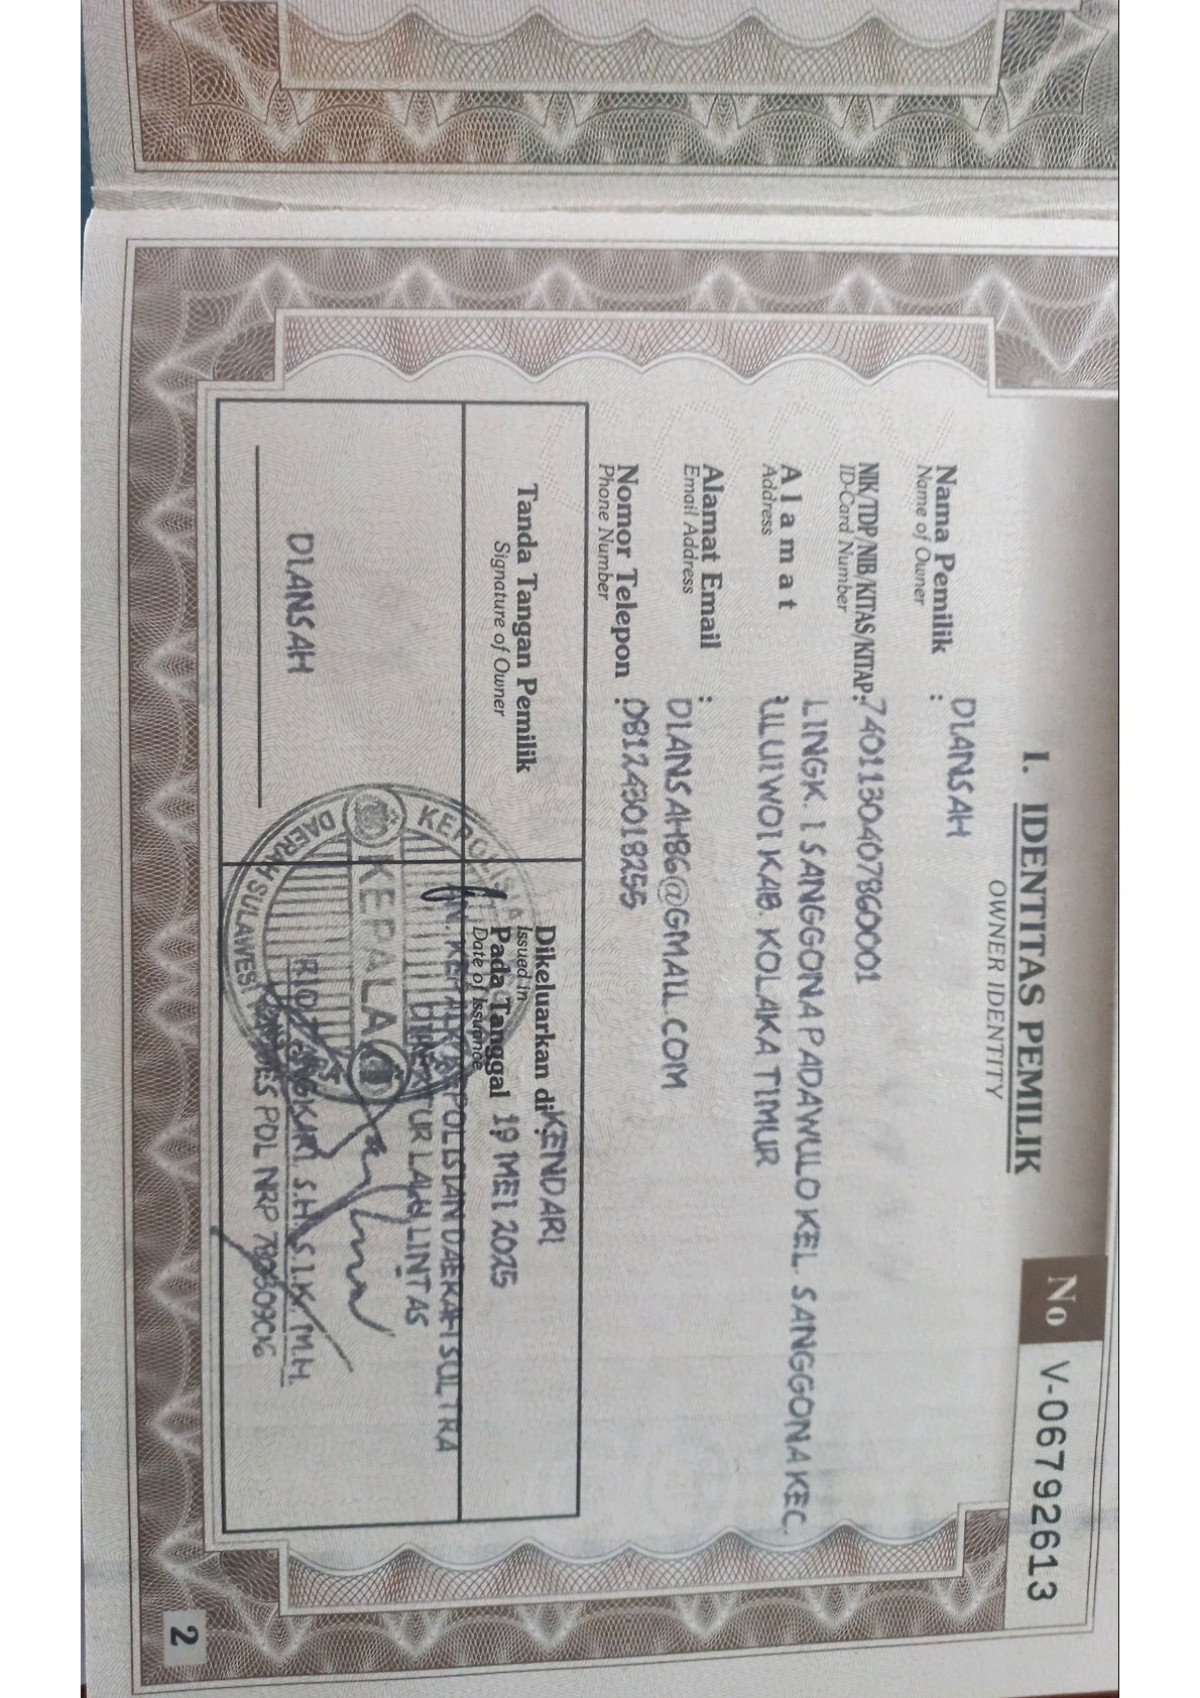 I. IDENTITAS PEMILIK
OWNER IDENTITY
No V-06792613
Nama Pemilik : DIANSAH
Name of Owner
NIK/TDP/NIB/KITAS/KITAP: 7401130407860001
ID-Card Number
LINGK. I SANGGONA PADAWULO KEL. SANGGONA KEC.
A l a m a t : ULUIWOI KAB. KOLAKA TIMUR
Address
Alamat Email : DIANSAH86@GMAIL.COM
Email Address
Nomor Telepon : 081243018255
Phone Number
Tanda Tangan Pemilik
Signature of Owner
Dikeluarkan di: KENDARI
Issued in
Pada Tanggal : 19 MEI 2025
Date of Issuance
AN. KEPALA KEPOLISIAN DAERAH SULTRA
DIREKTUR LALU LINTAS
KEPOLISIAN
KEPALA
DAERAH SULAWESI
DIANSAH
S.H., S.I.K., M.H.
POL NRP
2